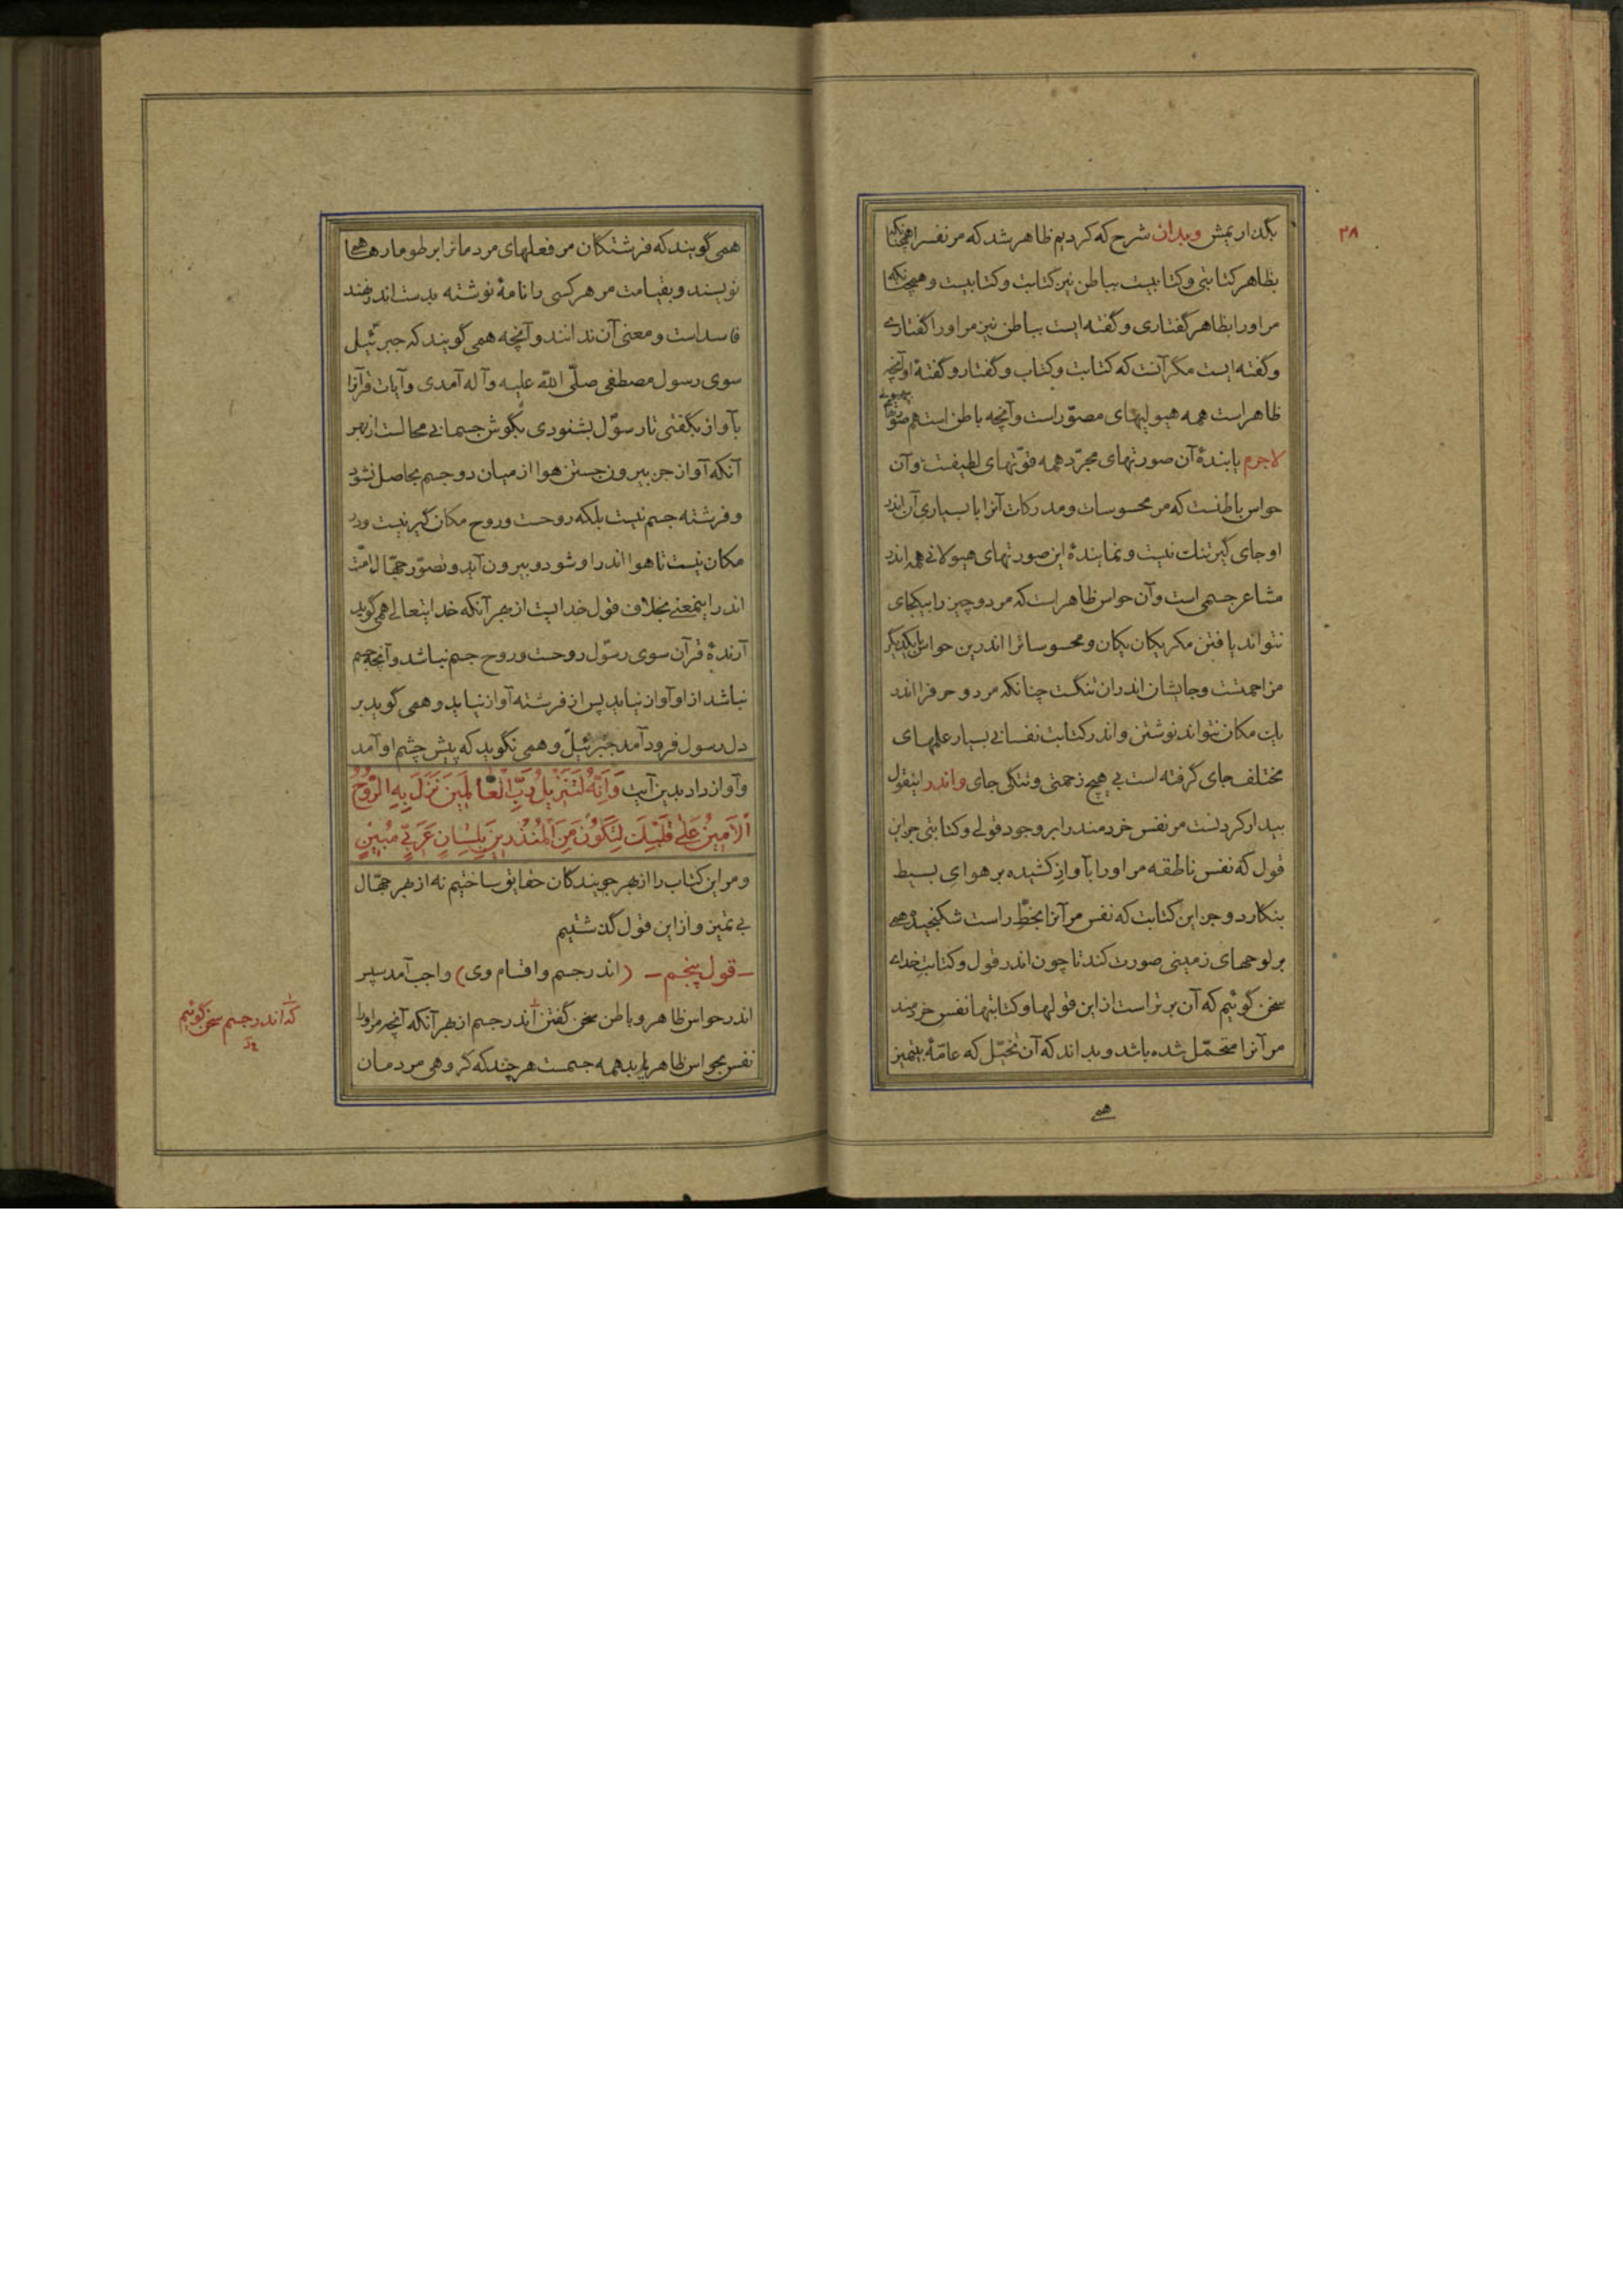 ۳۸
بگذاریمش وبدان شرح که کردیم ظاهر شد که مر نفس را همچنانکه
بظاهر کتابتی وکتابیست بباطن نیز کتابت وکتابیست وهمچنانکه
مر اورا بظاهر گفتاری وگفته ایست بباطن نیز مر اورا گفتاری
وگفته ایست مگر آنست که کتابت وکتاب وگفتار وگفتهٔ او آنچه
ظاهر است همه هیولیهای مصوّر است وآنچه باطن است همه
لاجرم یابندهٔ آن صورتهای مجرّد همه قوّتهای لطیفست وآن
حواس باطنست که مر محسوسات ومدرکات آنرا با بسیاری آن اندر
او جای گیر تنک نیست ونمایندهٔ این صورتهای هیولانی همه اندر
مشاعر جسمی است وآن حواس ظاهر است که مر دو چیز را بیکجای
نتواند یافتن مگر یکان یکان ومحسوساترا اندرین حواس با یکدیگر
مزاحمتست وجایشان اندران تنگست چنانکه مر دو حرفرا اندر
یک مکان نتواند نوشتن واندر کتابت نفسانی بسیار علمهای
مختلف جای گرفته است بی هیچ زحمتی وتنگی جای واندر اینقول
بیدار کردنست مر نفس خردمند را بر وجود قولی وکتابتی جز این
قول که نفس ناطقه مر اورا بآواز کشیده بر هوای بسیط
بنگارد وجز این کتابت که نفس مر آنرا بخطّ راست شکنجیده همی
بر لوحهای زمینی صورت کند تا چون اندر قول وکتابت خدای
سخن گوئیم که آن برتر است از این قولها وکتابتها نفس خردمند
مر آنرا متحمّل شده باشد وبداند که آن تخیّل که عامّهٔ بیتمیز
همی
همی گویند که فرشتگان مر فعلهای مردمانرا بر طومارها همی
نویسند وبقیامت مر هر کسی را نامهٔ نوشته بدست اندر نهند
فاسد است ومعنی آن ندانند وآنچه همی گویند که جبرئیل
سوی رسول مصطفی صلّی الله علیه وآله آمدی وآیات قرآنرا
بآواز بگفتی تا رسول بشنودی بگوش جسمانی محالست از بهر
آنکه آواز جز بیرون جستن هوا از میان دو جسم بحاصل نشود
وفرشته جسم نیست بلکه روحست وروح مکان گیر نیست ودر
مکان نیست تا هوا اندر او شود وبیرون آید وتصوّر جهّال امّت
اندر اینمعنی بخلاف قول خدایست از بهر آنکه خدایتعالی همی گوید
آرندهٔ قرآن سوی رسول روحست وروح جسم نباشد وآنچه جسم
نباشد از او آواز نیاید پس از فرشته آواز نیاید وهمی گوید بر
دل رسول فرود آمد جبرئیل وهمی نگوید که پیش چشم او آمد
وآواز داد بدین آیت وَاِنَّهُ لَتَنْزِیلُ رَبِّ الْعَالَمِینَ نَزَلَ بِهِ الرُّوحُ
الْاَمِینُ عَلٰی قَلْبِکَ لِتَکُونَ مِنَ الْمُنْذِرِینَ بِلِسَانٍ عَرَبِیٍّ مُبِینٍ
ومر این کتاب را از بهر جویندگان حقایق ساختیم نه از بهر جهّال
بی تمیز واز این قول گذشتیم
– قول پنجم – (اندر جسم واقسام وی) واجب آمد سپس
اندر حواس ظاهر وباطن سخن گفتن اندر جسم از بهر آنکه آنچه مر اورا
نفس بحواس ظاهر یابد همه جسمست هر چند که گروهی مردمان
که اندر جسم سخن گوئیم